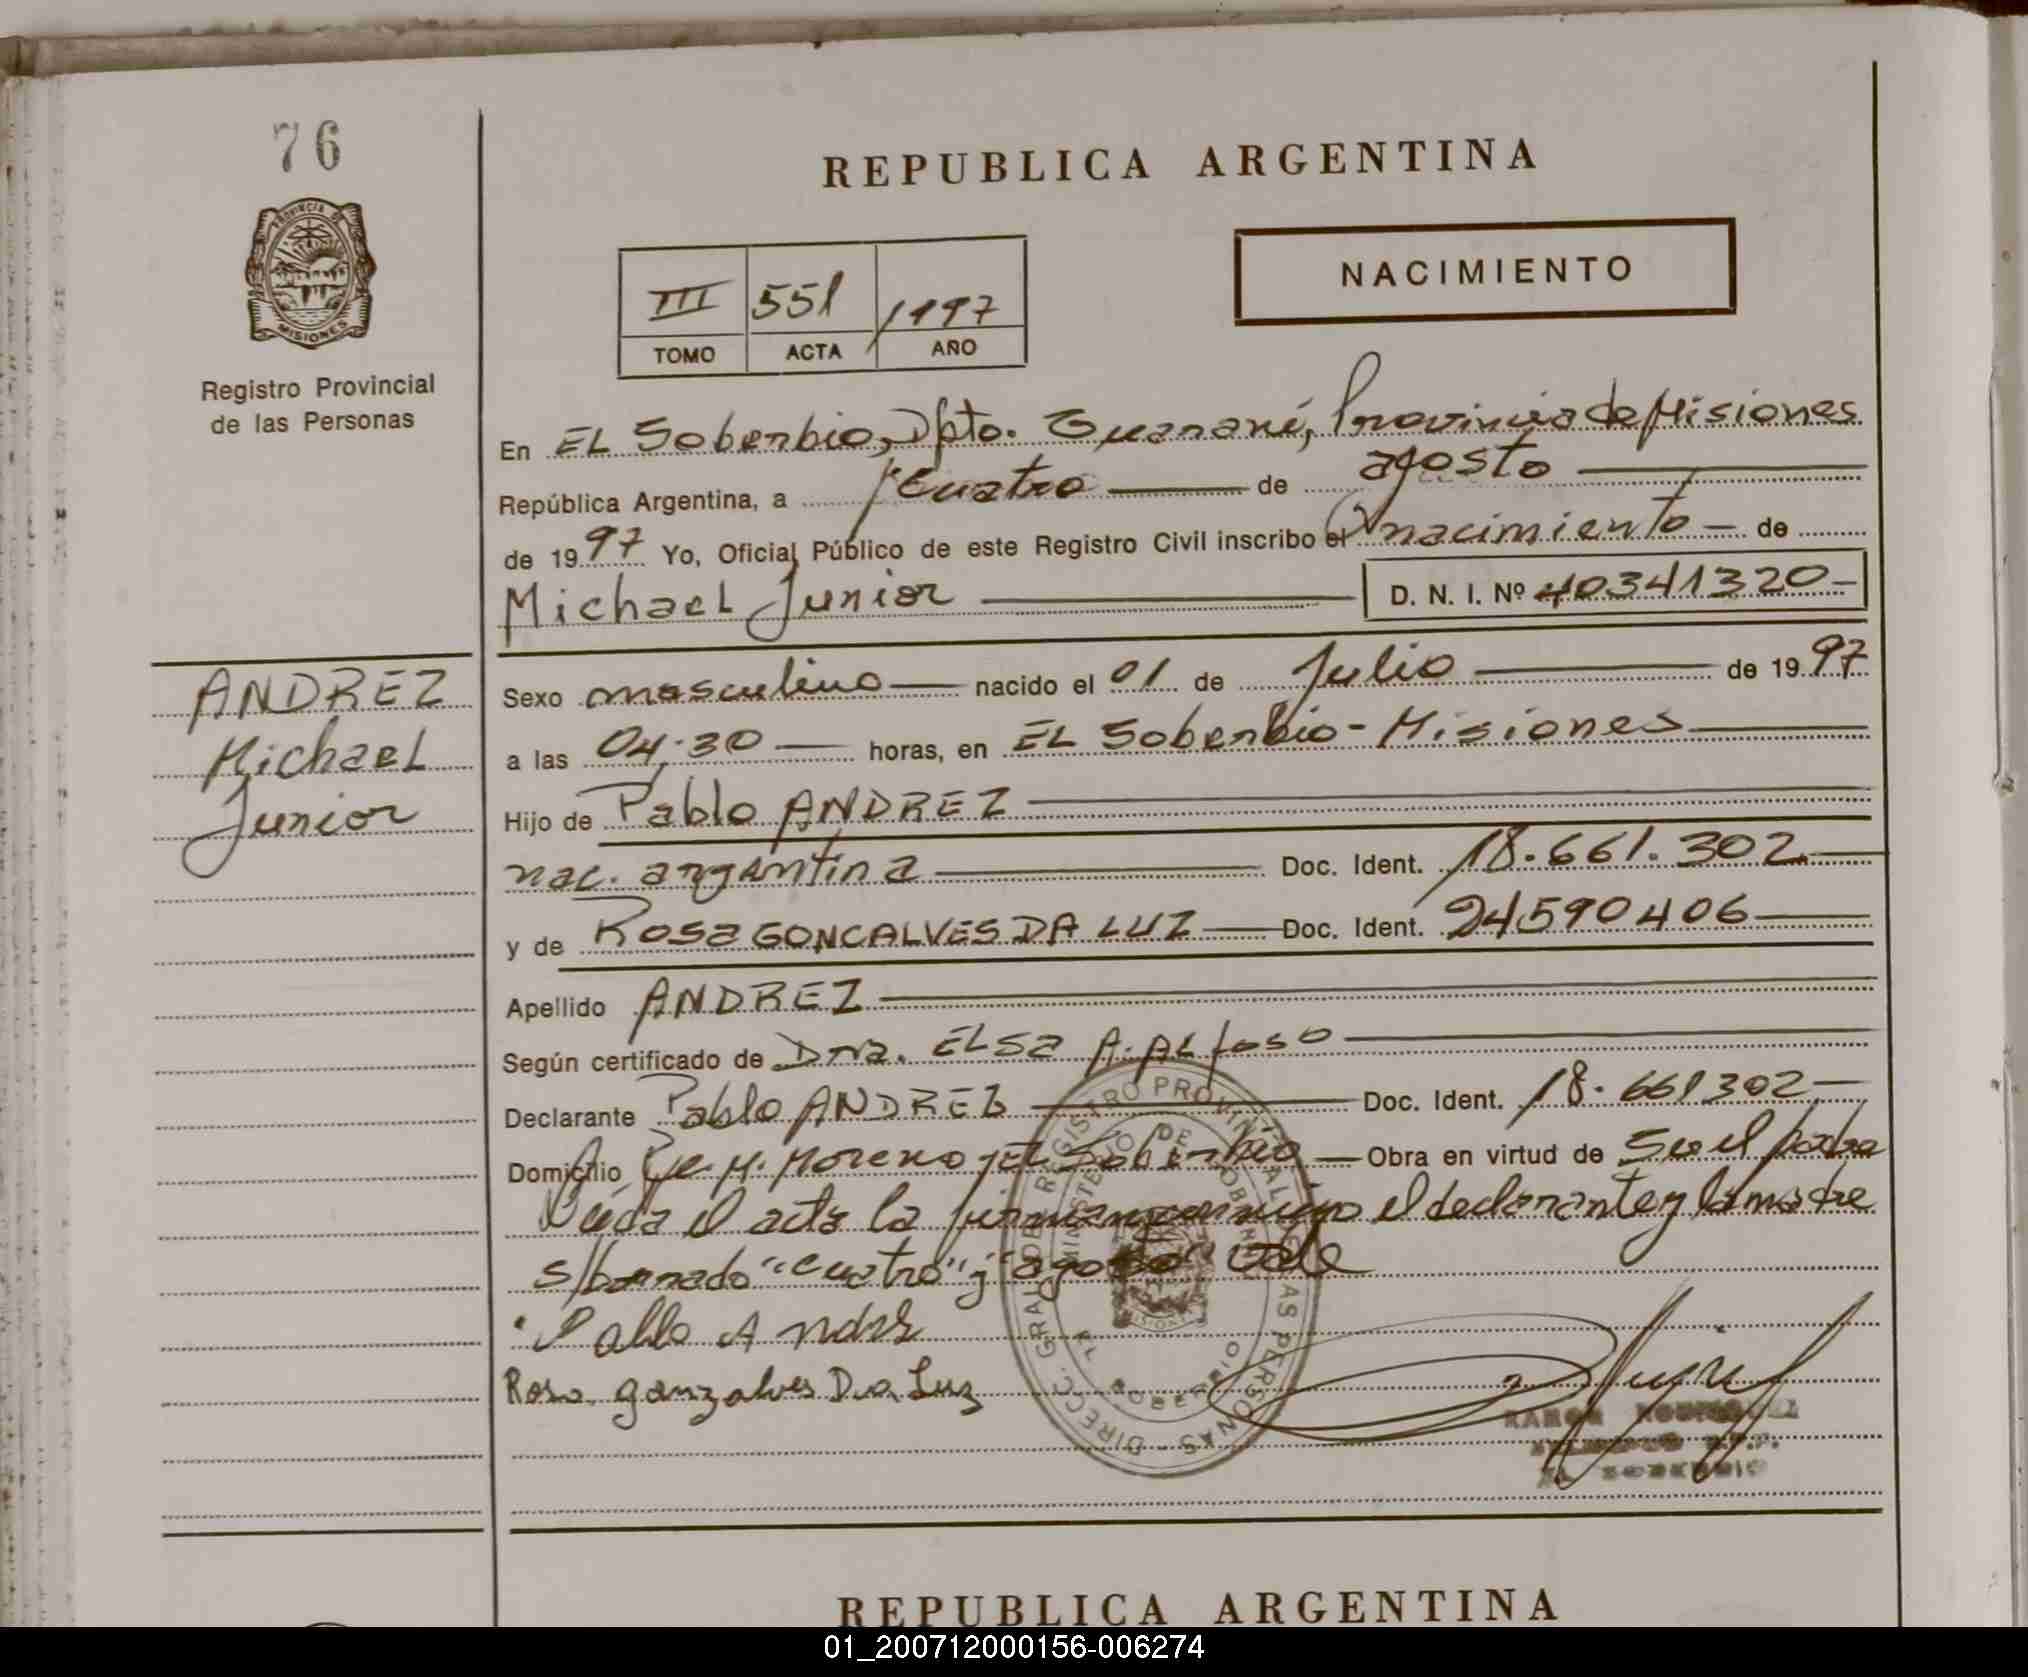 76
PROVINCIA DE
MISIONES
Registro Provincial
de las Personas
ANDREZ
Michael
Junior
REPUBLICA ARGENTINA
III 551 1997
TOMO ACTA AÑO
NACIMIENTO
En EL Soberbio, Dpto. Guaraní, Provincia de Misiones
República Argentina, a Cuatro de agosto
de 1997 Yo, Oficial Público de este Registro Civil inscribo el nacimiento de
Michael Junior D. N. I. Nº 40341320-
Sexo masculino nacido el 01 de Julio de 1997
a las 04:30 horas, en EL Soberbio - Misiones
Hijo de Pablo ANDREZ
nac. argentina Doc. Ident. 18.661.302.
y de Rosa GONCALVES DA LUZ Doc. Ident. 24590406
Apellido ANDREZ
Según certificado de Dra. ELSa A.
Declarante Pablo ANDREZ Doc. Ident. 18.661302
Domicilio M. Moreno EL Soberbio Obra en virtud de Ser el padre
el acta la firman conmigo el declarante y la madre
s/borrado "cuatro" y "agosto" Vale
Pablo Andrez
Rosa gonzalves Da Luz
DIREC. GRAL. DE REGISTRO PROVINCIAL DE LAS PERSONAS
MINISTERIO DE GOBIERNO
MISIONES
EL SOBERBIO
RAMON
EL SOBERBIO
REPUBLICA ARGENTINA
01_200712000156-006274